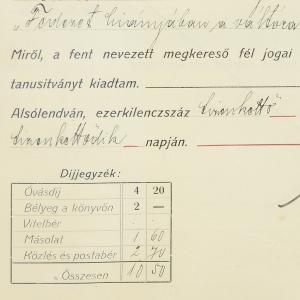 "Fedezet hiányában a váltóra
Miről, a fent nevezett megkereső fél jogai
tanusitványt kiadtam.
Alsólendván, ezerkilencszáz tizenkettő
tizenkettedik napján.
Dijjegyzék:
Óvásdij 4 20
Bélyeg a könyvön 2 —
Vitelbér . .
Másolat 1 60
Közlés és postabér 2 70
Összesen 10 50